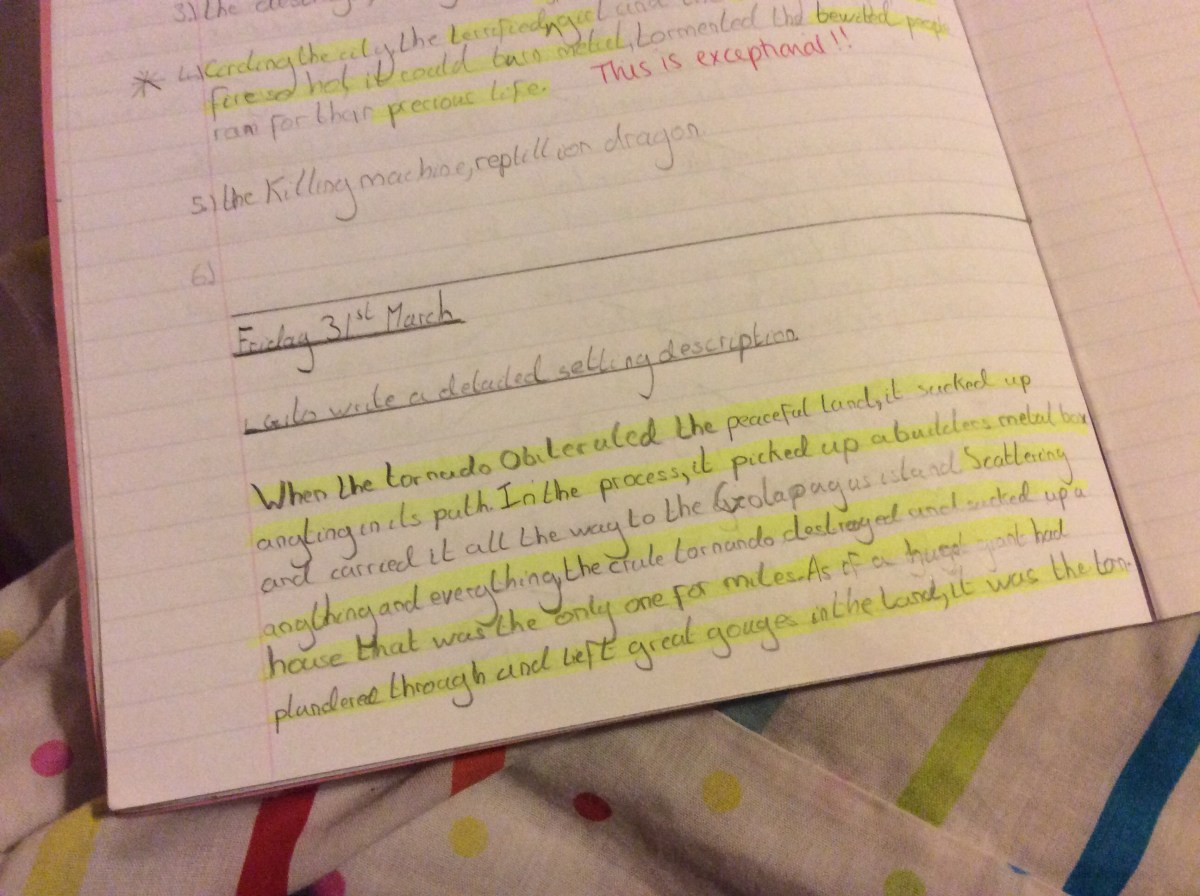 3.) the
* 4.) Circling the city, the terrified girl and
fire so hot it could burn metal, tormented the people
ran for thair precious life. This is exceptional!!
5.) the killing machine, reptillion dragon
6.)
Friday 31st March
write a detaled setting description.
When the tornado Obliterated the peaceful land, it sucked up
in its path. In the process, it picked up a builders metal box
and carried it all the way to the Golapagus island Scattering
anything and everything, the tornando destroyed and sucked up a
house that was the only one for miles. As if a huge giant had
plundered through and left great gouges in the land, it was the tor-